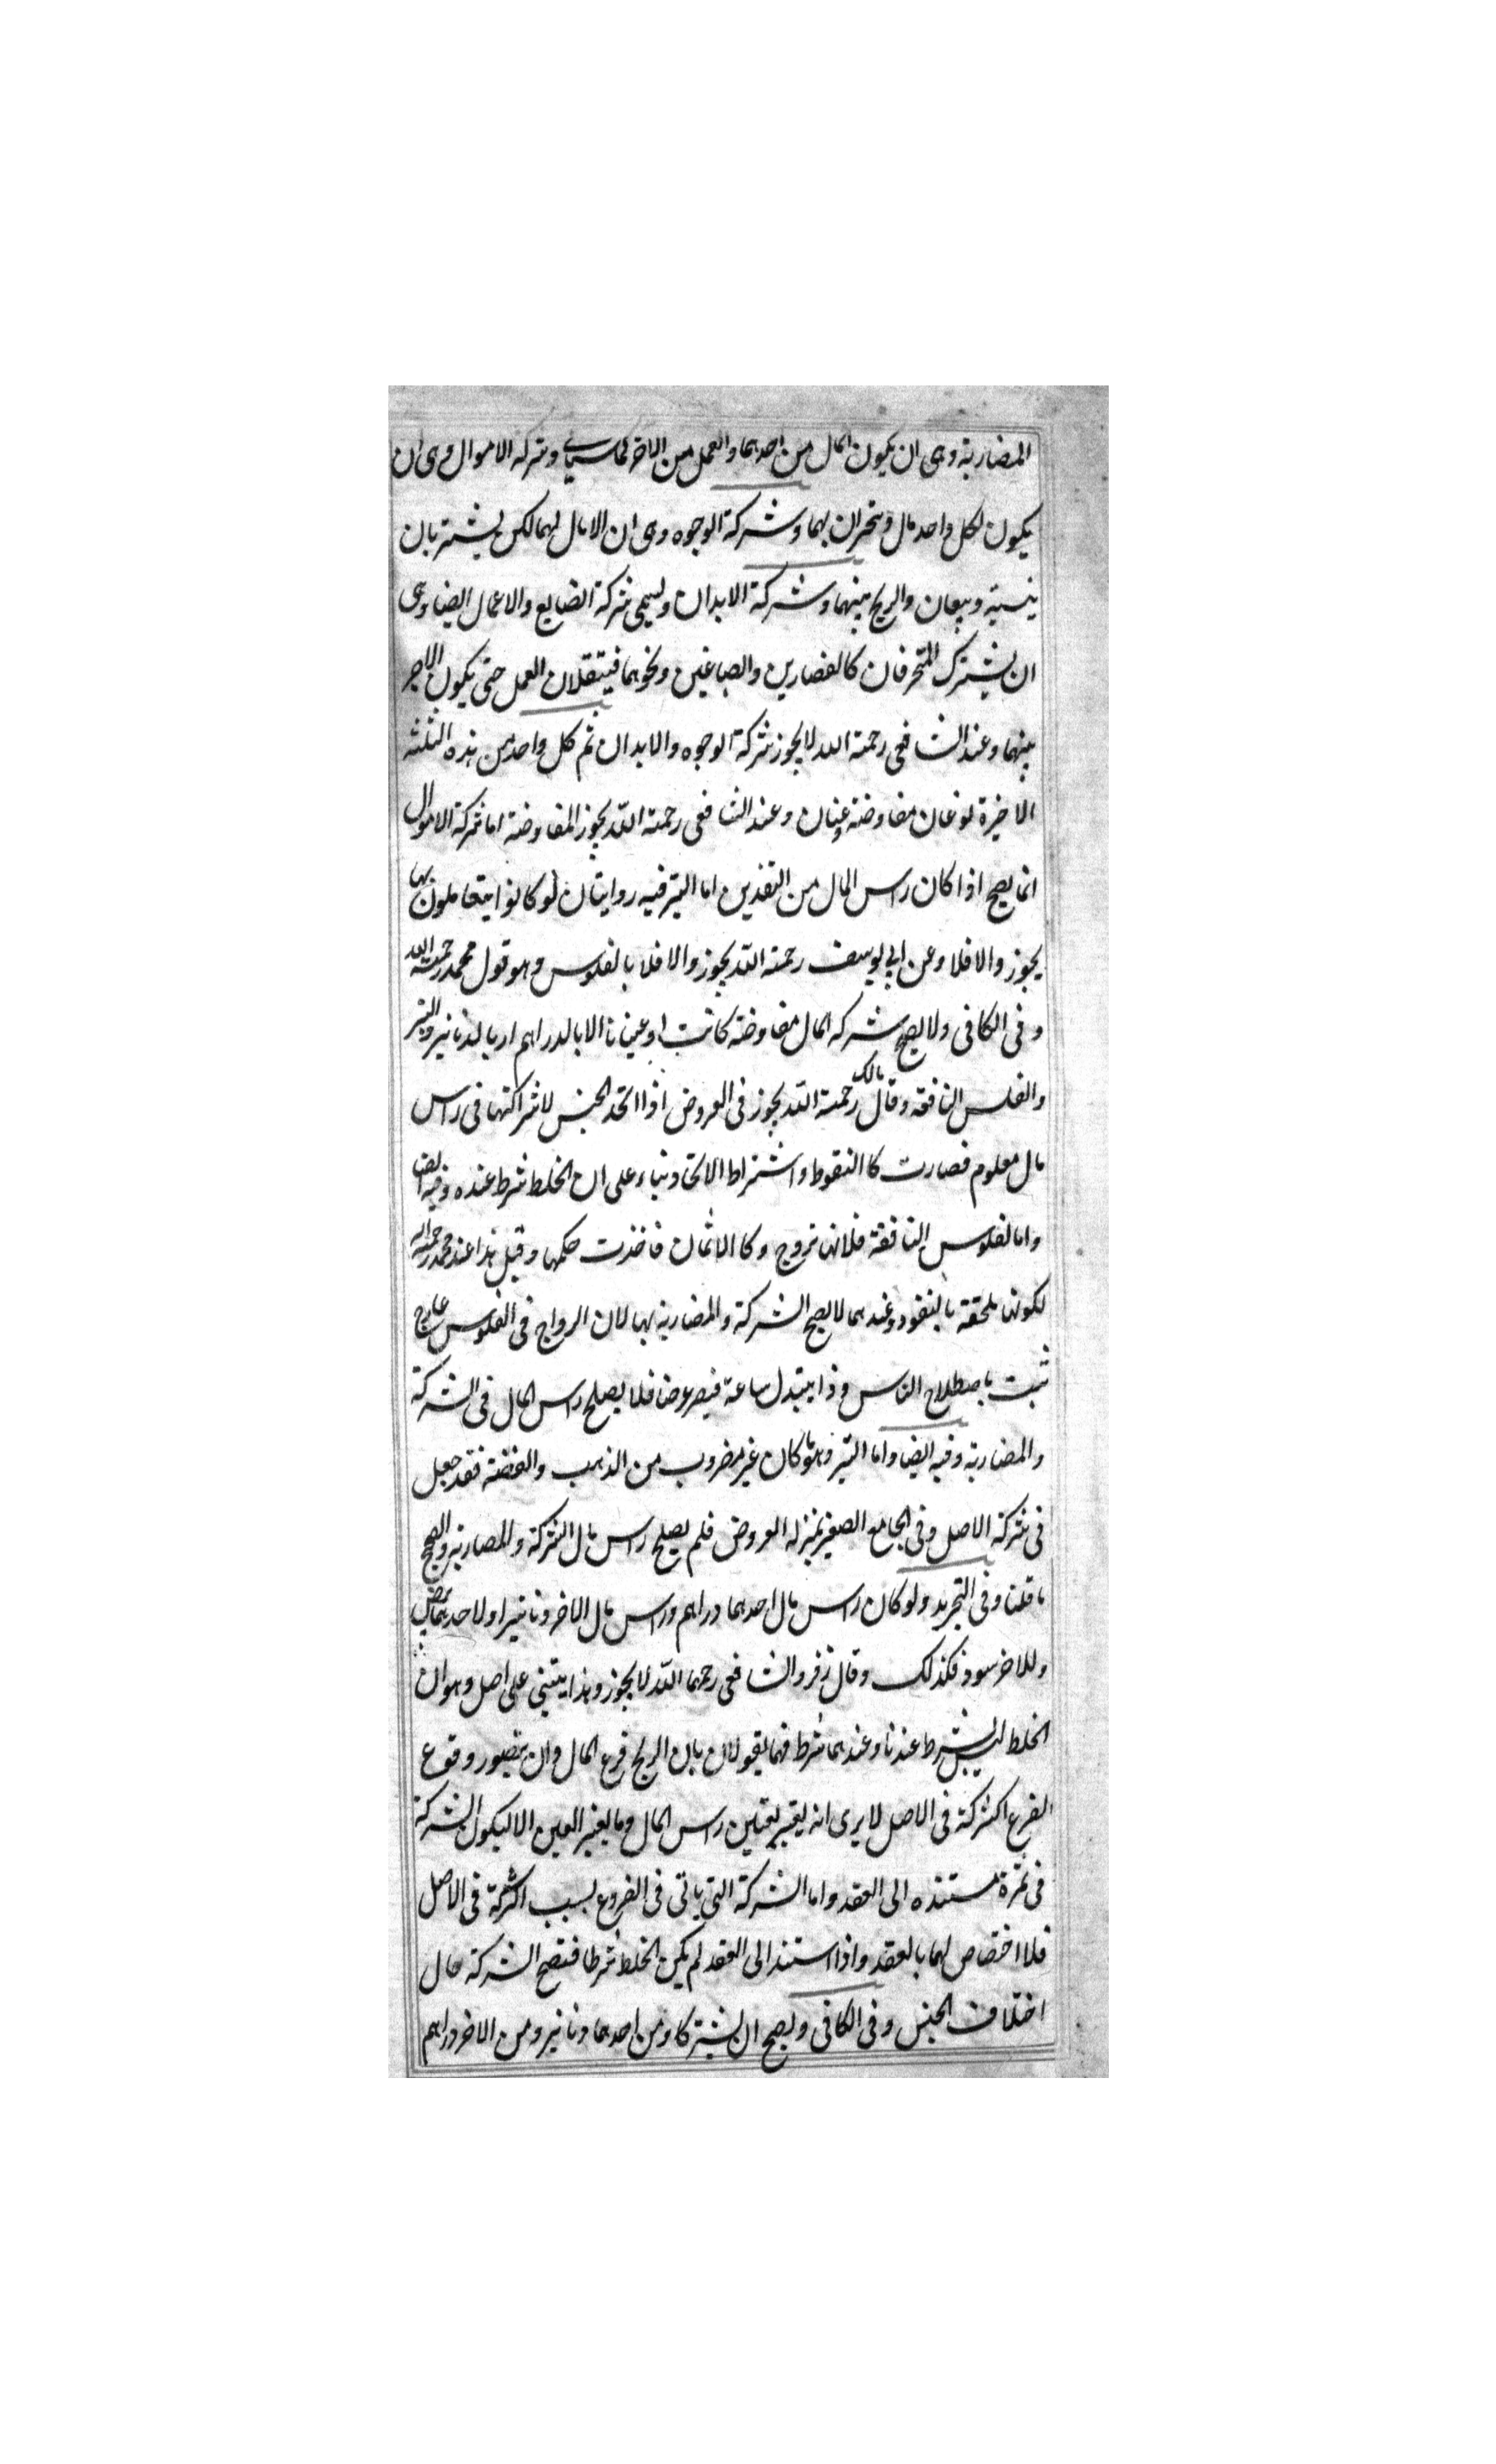 المضاربة وهى ان يكون المال من احدهما والعمل من الاخر كما سياتے وشركة الاموال وهى ان
يكون لكل واحد مال ويتجران بهما وشركة الوجوه وهى ان لا مال لهما لكن يشتريان
بنسيته ويبيعان والربح بينهما وشركة الابدان ويسمى شركة الصنايع والاعمال ايضا وهى
ان يشترك المحترفان كالقصارين والصباغين ونحوهما فيتقبلان العمل حتى يكون الاجر
بينهما وعند الشافعى رحمة الله لا يجوز شركة الوجوه والابدان ثم كل واحد من هذه الثلثه
الاخيرة نوعان مفاوضته وعنان وعند الشافعى رحمة الله يجوز المفاوضته اما شركة الاموال
انما يصح اذا كان راس المال من النقدين اما التبر فيه روايتان لو كانوا يتعاملون بها
يجوز والا فلا وعن ابى يوسف رحمة الله يجوز والا فلا بالفلوس وهو قول محمد رحمة الله
وفى الكافى ولا يصح شركة المال مفاوضته كانت او عنانا الا بالدراهم او بالدنانير والتبر
والفلس النافقه وقال مالك رحمة الله يجوز فى العروض اذا اتحد الجنس لاشراكتها فى راس
مال معلوم فصارت كالنقوط واشتراط الاتحاد بناء على ان الخلط شرط عنده وفيه ايضا
واما لفلوس النافقة فلانها تروج وكالاثمان فاخذت حكمها وقيل هذا عند محمد رحمة الله
لكونها ملحقة بالنقود وعندهما لا يصح الشركة والمضاربة بها لان الرواج فى الفلوس عارض
ثبت باصطلاح الناس وذا يتبدل ساعة فيصر عرضا فلا يصلح راس المال فى الشركة
والمضاربة وفيه ايضا واما التبر وهو ما كان غير مضروب من الذهب والفضته فقد جعل
فى شركة الاصل وفى الجامع الصغير بمنزلة العروض فلم يصلح راس مال الشركة والمضاربة والصحيح
ما قلنا وفى التجريد ولو كان راس مال احدهما دراهم وراس مال الاخر دنانير او لاحدهما بيض
وللاخر سود فكذلك وقال زفر والشافعى رحمهما الله لا يجوز وهذا يبتنى على اصل وهو ان
الخلط ليس بشرط عندنا وعندهما شرط فهما يقولان بان الربح فرع المال وان يتصور وقوع
الفرع اكشركة فى الاصل لا يرى انه يعتبر لعتين راس المال وما يعتبر العين الا ليكون الشركة
فى ثمرة مستنده الى العقد واما الشركة التى ياتى فى الفروع بسبب اكشركة فى الاصل
فلا اختصاص لهما بالعقد واذا استند الى العقد لم يكن الخلط شرطا فتصح الشركة حال
اختلاف الجنس وفى الكافى ويصح ان يشتركا ومن احدهما دنانير ومن الاخر دراهم